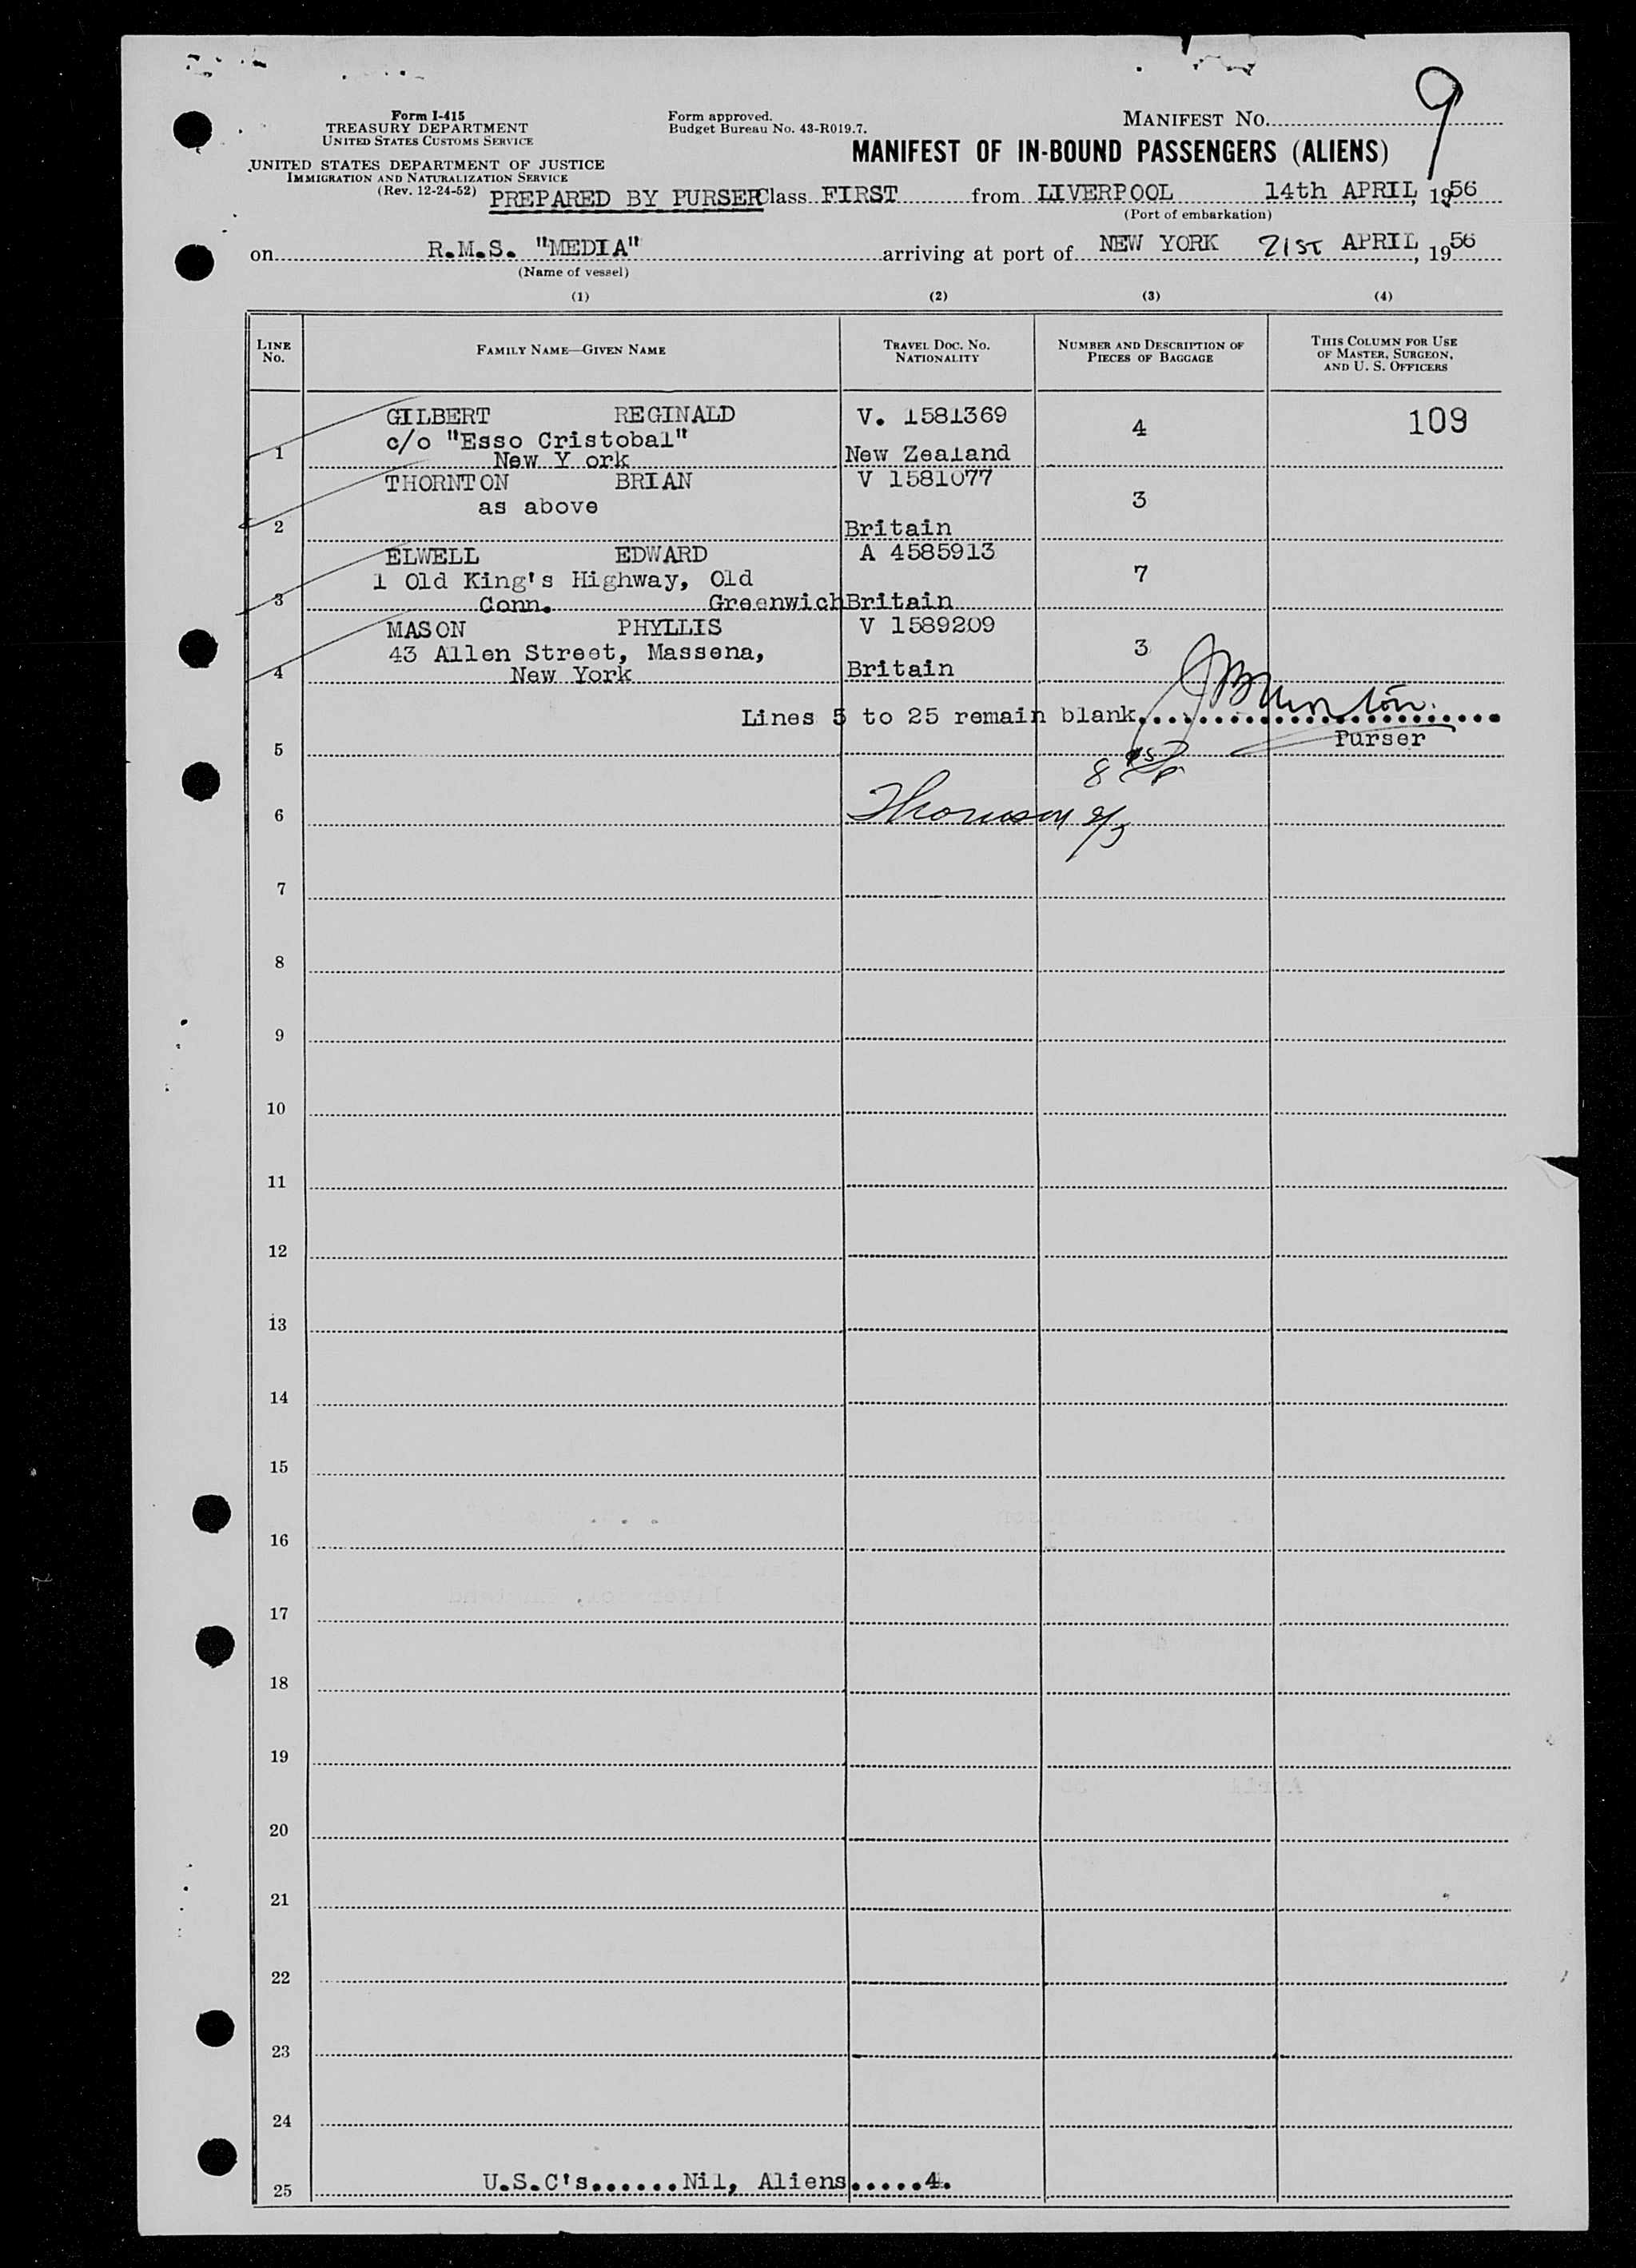 9
Form I-415
TREASURY DEPARTMENT
UNITED STATES CUSTOMS SERVICE
UNITED STATES DEPARTMENT OF JUSTICE
IMMIGRATION AND NATURALIZATION SERVICE
(Rev. 12-24-52)
Form approved.
Budget Bureau No. 43-R019.7.
MANIFEST NO.
MANIFEST OF IN-BOUND PASSENGERS (ALIENS)
PREPARED BY PURSER Class FIRST from LIVERPOOL 14th APRIL, 1956
(Port of embarkation)
on R.M.S. "MEDIA" arriving at port of NEW YORK 21ST APRIL, 1956
(Name of vessel)
(1) (2) (3) (4)
LINE No. FAMILY NAME—GIVEN NAME TRAVEL DOC. NO. NATIONALITY NUMBER AND DESCRIPTION OF PIECES OF BAGGAGE THIS COLUMN FOR USE OF MASTER, SURGEON, AND U. S. OFFICERS
GILBERT REGINALD V. 1581369 4 109
c/o "Esso Cristobal"
1 New Y ork New Zealand
THORNTON BRIAN V 1581077 3
as above
2 Britain
ELWELL EDWARD A 4585913 7
1 Old King's Highway, Old
3 Conn. Greenwich Britain
MASON PHYLLIS V 1589209 3
43 Allen Street, Massena,
4 New York Britain
Lines 5 to 25 remain blank.
Purser
5
6
7
8
9
10
11
12
13
14
15
16
17
18
19
20
21
22
23
24
25 U.S.C's......Nil, Aliens.....4.